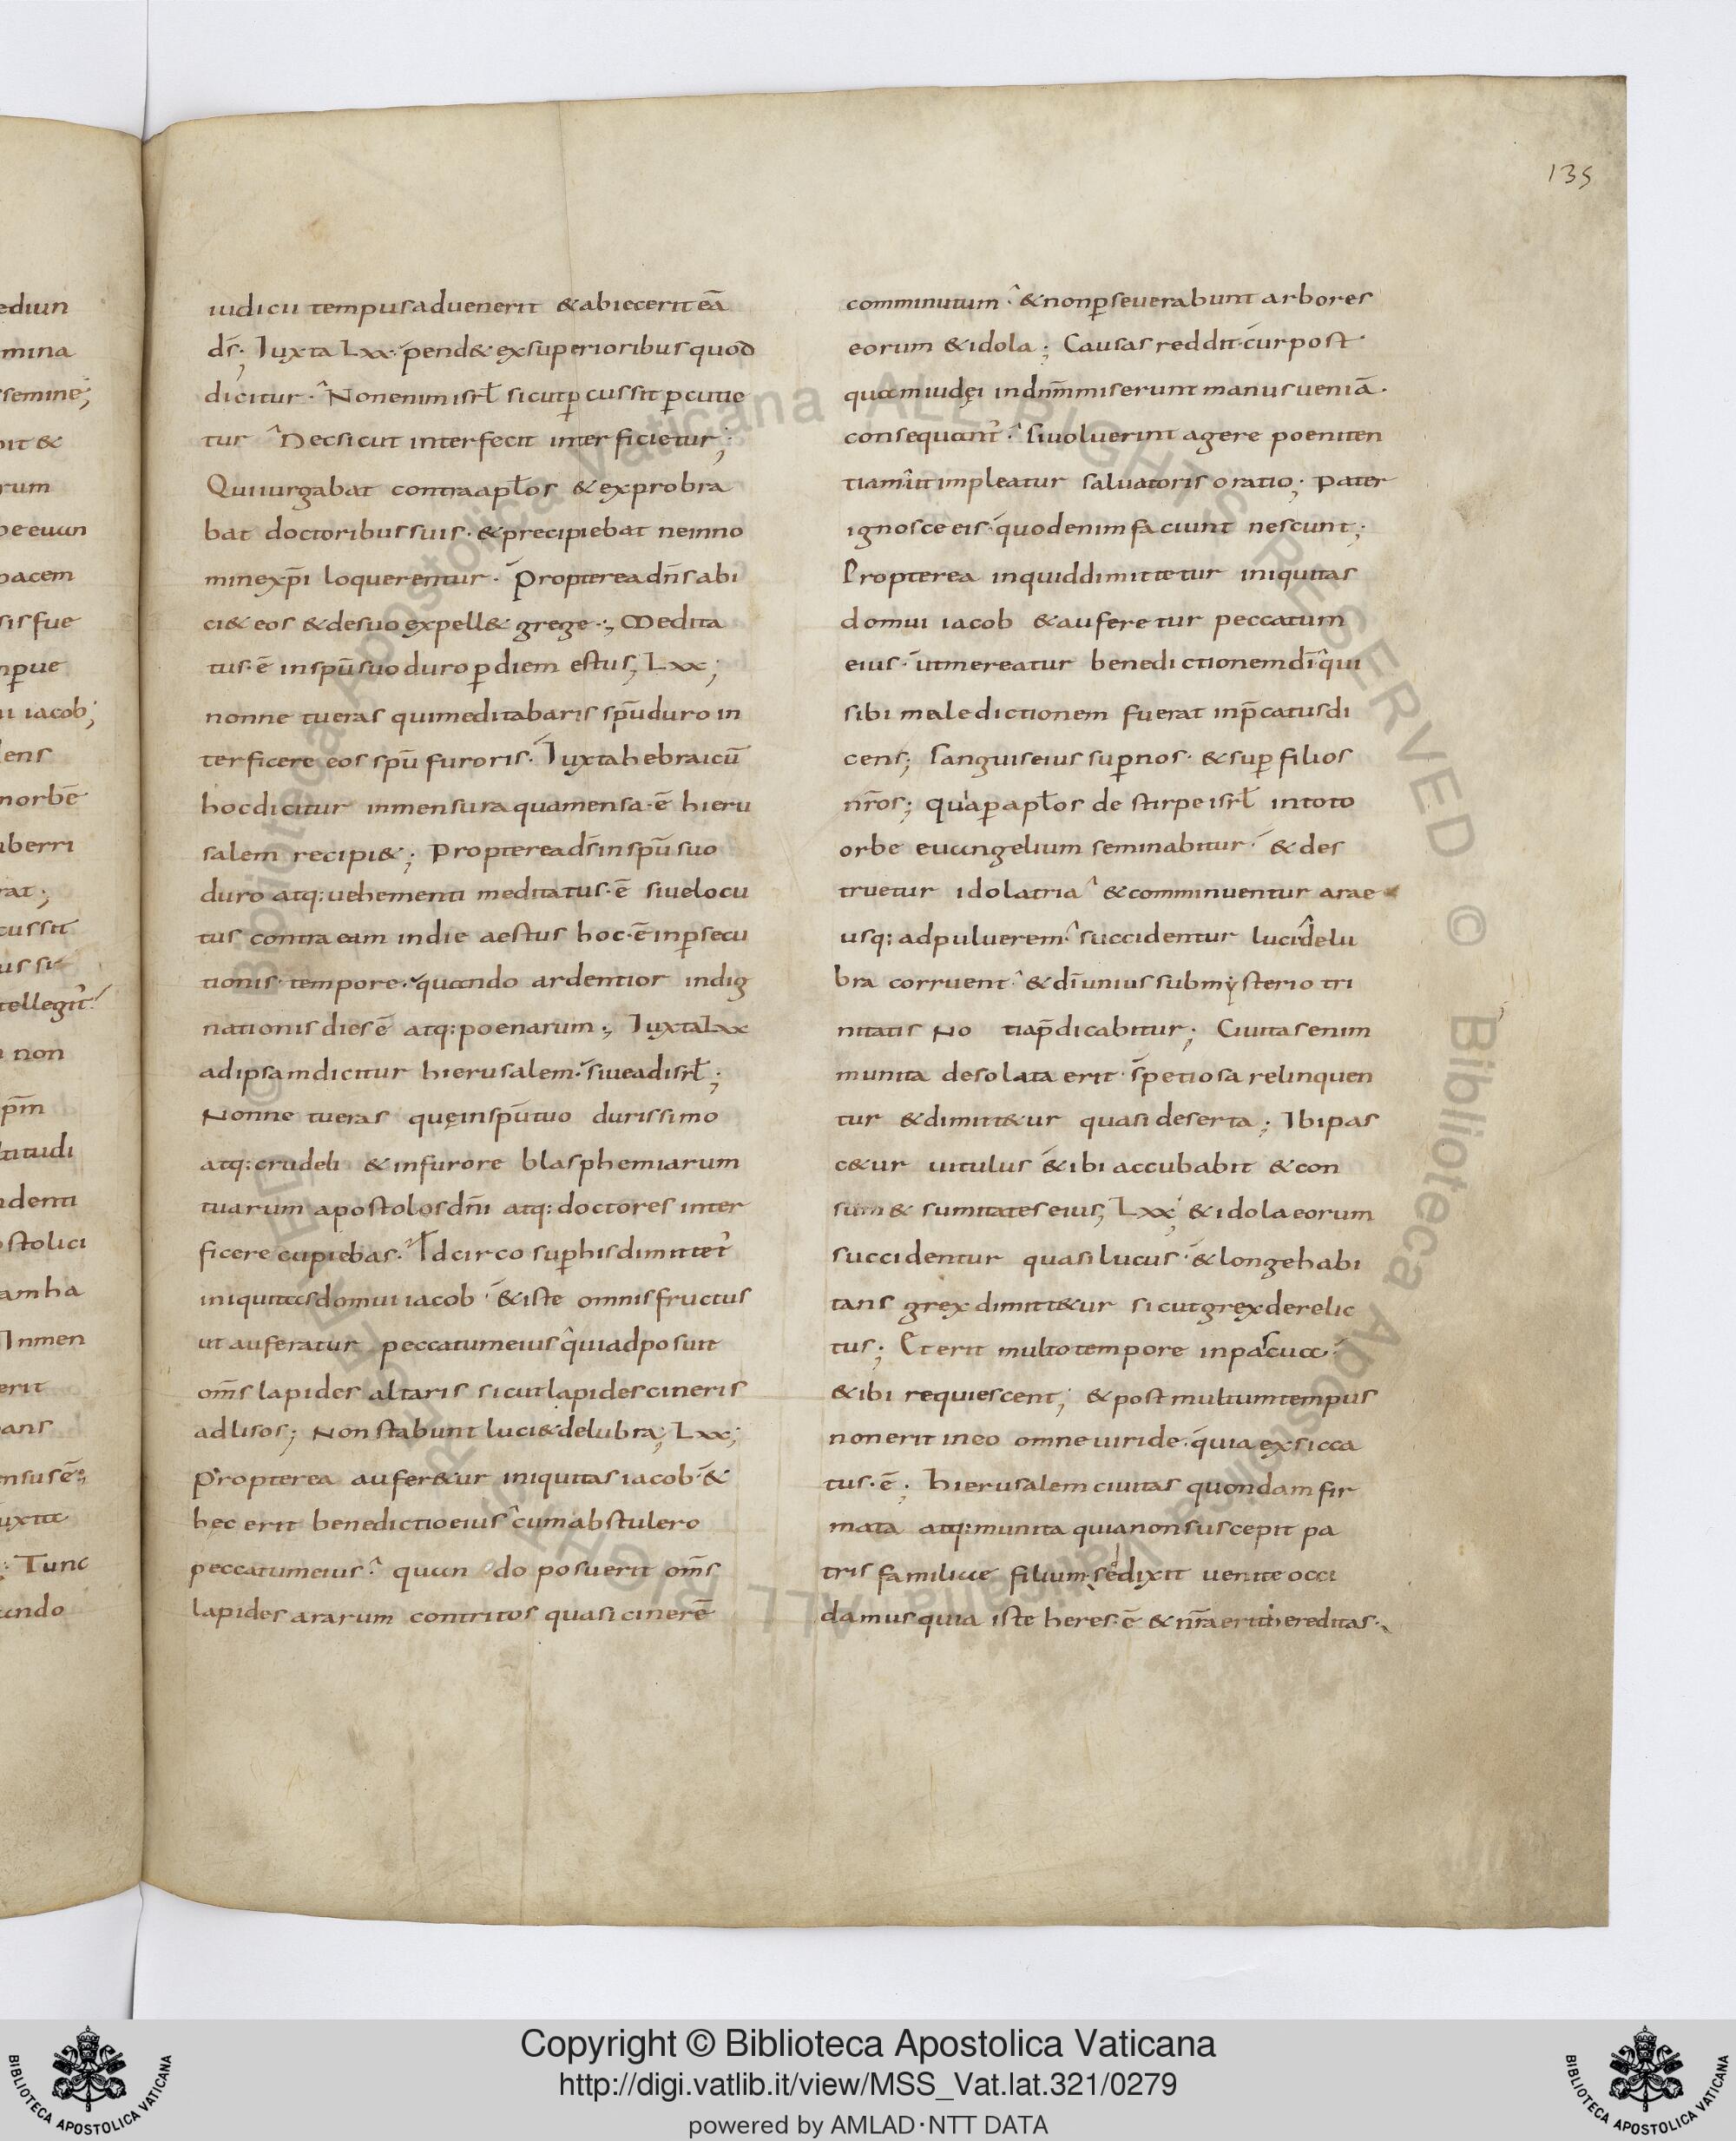 135
iudicii tempus aduenerit & abiecerit eā
ds̄; Iuxta Lxx· pend& exsuperioribus quod
dicitur· Non enim isrl̄ sicut p̱cussit p̱cutie
tur Nec sicut interfecit interficietur;
Qui iurgabat contra apl̄os & exprobra
bat doctoribus suis· & precipiebat ne in no
mine xp̄i loquerentur· Propterea dn̄s abi
ci& eos & de suo expell& grege·; Medita
tus·ē in spū suo duro p̱ diem estus; Lxx;
nonne tu eras qui meditabaris spū duro in
terficere eos spū furoris· Iuxta hebraicū
hoc dicitur in mensura qua mensa·ē hieru
salem recipi&; Propterea ds̄ in spū suo
duro atq: uehementi meditatus·ē siue locu
tus contra eam in die aestus hoc·ē in p̱secu
tionis· tempore· quando ardentior indig
nationis dies ē atq: poenarum·; Iuxta Lxx
ad ipsam dicitur hierusalem· siue ad isrl̄;
Nonne tu eras quę in spū tuo durissimo
atq: crudeli & in furore blasphemiarum
tuarum apostolos dn̄i atq: doctores inter
ficere cupiebas· Idcirco sup̱ his dimittet᷑
iniquitas domui iacob & iste omnis fructus
ut auferatur peccatum eius qui ad posuit
om̄s lapides altaris sicut lapides cineris
adlisos; Non stabunt luci & delubra; Lxx;
Propterea aufer&ur iniquitas iacob· &
hęc erit benedictio eius cum abstulero
peccatum eius· quan do posuerit om̄s
lapides ararum contritos quasi cinerē
comminutum· & non p̱seuerabunt arbores
eorum & idola; Causas reddit· cur post
quam iudęi in dn̄m miserunt manus ueniā·
consequant᷑· si uoluerint agere poeniten
tiam ut impleatur saluatoris oratio; Pater
ignosce eis· quod enim faciunt nesciunt;
Propterea inquid dimittetur iniquitas
domui iacob & auferetur peccatum
eius· ut mereatur benedictionem dī qui
sibi maledictionem fuerat inp̄catus di
cens; sanguis eius sup̱ nos· & sup̱ filios
nr̄os; quia p̱ apl̄os de stirpe isrl̄ in toto
orbe euangelium seminabitur· & des
truetur idolatria & comminuentur arae
usq: ad puluerem· succidentur luci delu
bra corruent· & dī unius sub mysterio tri
nitatis No titia p̄dicabitur; Ciuitas enim
munita desolata erit· spetiosa relinquen
tur & dimitt&ur quasi deserta; Ibi pas
c&ur uitulus & ibi accubabit & con
sum& sumitates eius; Lxx; & idola eorum
succidentur quasi lucus· & longe habi
tans grex dimitt&ur sicut grex derelic
tus; Et erit multo tempore in pascua·
& ibi requiescent; & post multum tempus
non erit in eo omne uiride· quia exsicca
tus·ē; hierusalem ciuitas quondam fir
mata atq: munita quia non suscepit pa
tris familiae filium· sed dixit uenite occi
damus quia iste heres·ē & nr̄a erit hereditas·
ediun
mina
semine;
rum
pacem
sis fue
iacob;
ens
norbē
uberri
rat;
cussit
us si
tellegit᷑
non
titudi
ndenti
ostolici
am ha
Inmen
erit
ans
ensus ē·;
uxta
Tunc
ando
Biblioteca Apostolica Vaticana ALL RIGHTS RESERVED © Biblioteca Apostolica Vaticana ALL RIGHTS RESERVED ©
Copyright © Biblioteca Apostolica Vaticana
http://digi.vatlib.it/view/MSS_Vat.lat.321/0279
powered by AMLAD·NTT DATA
BIBLIOTECA APOSTOLICA VATICANA
BIBLIOTECA APOSTOLICA VATICANA